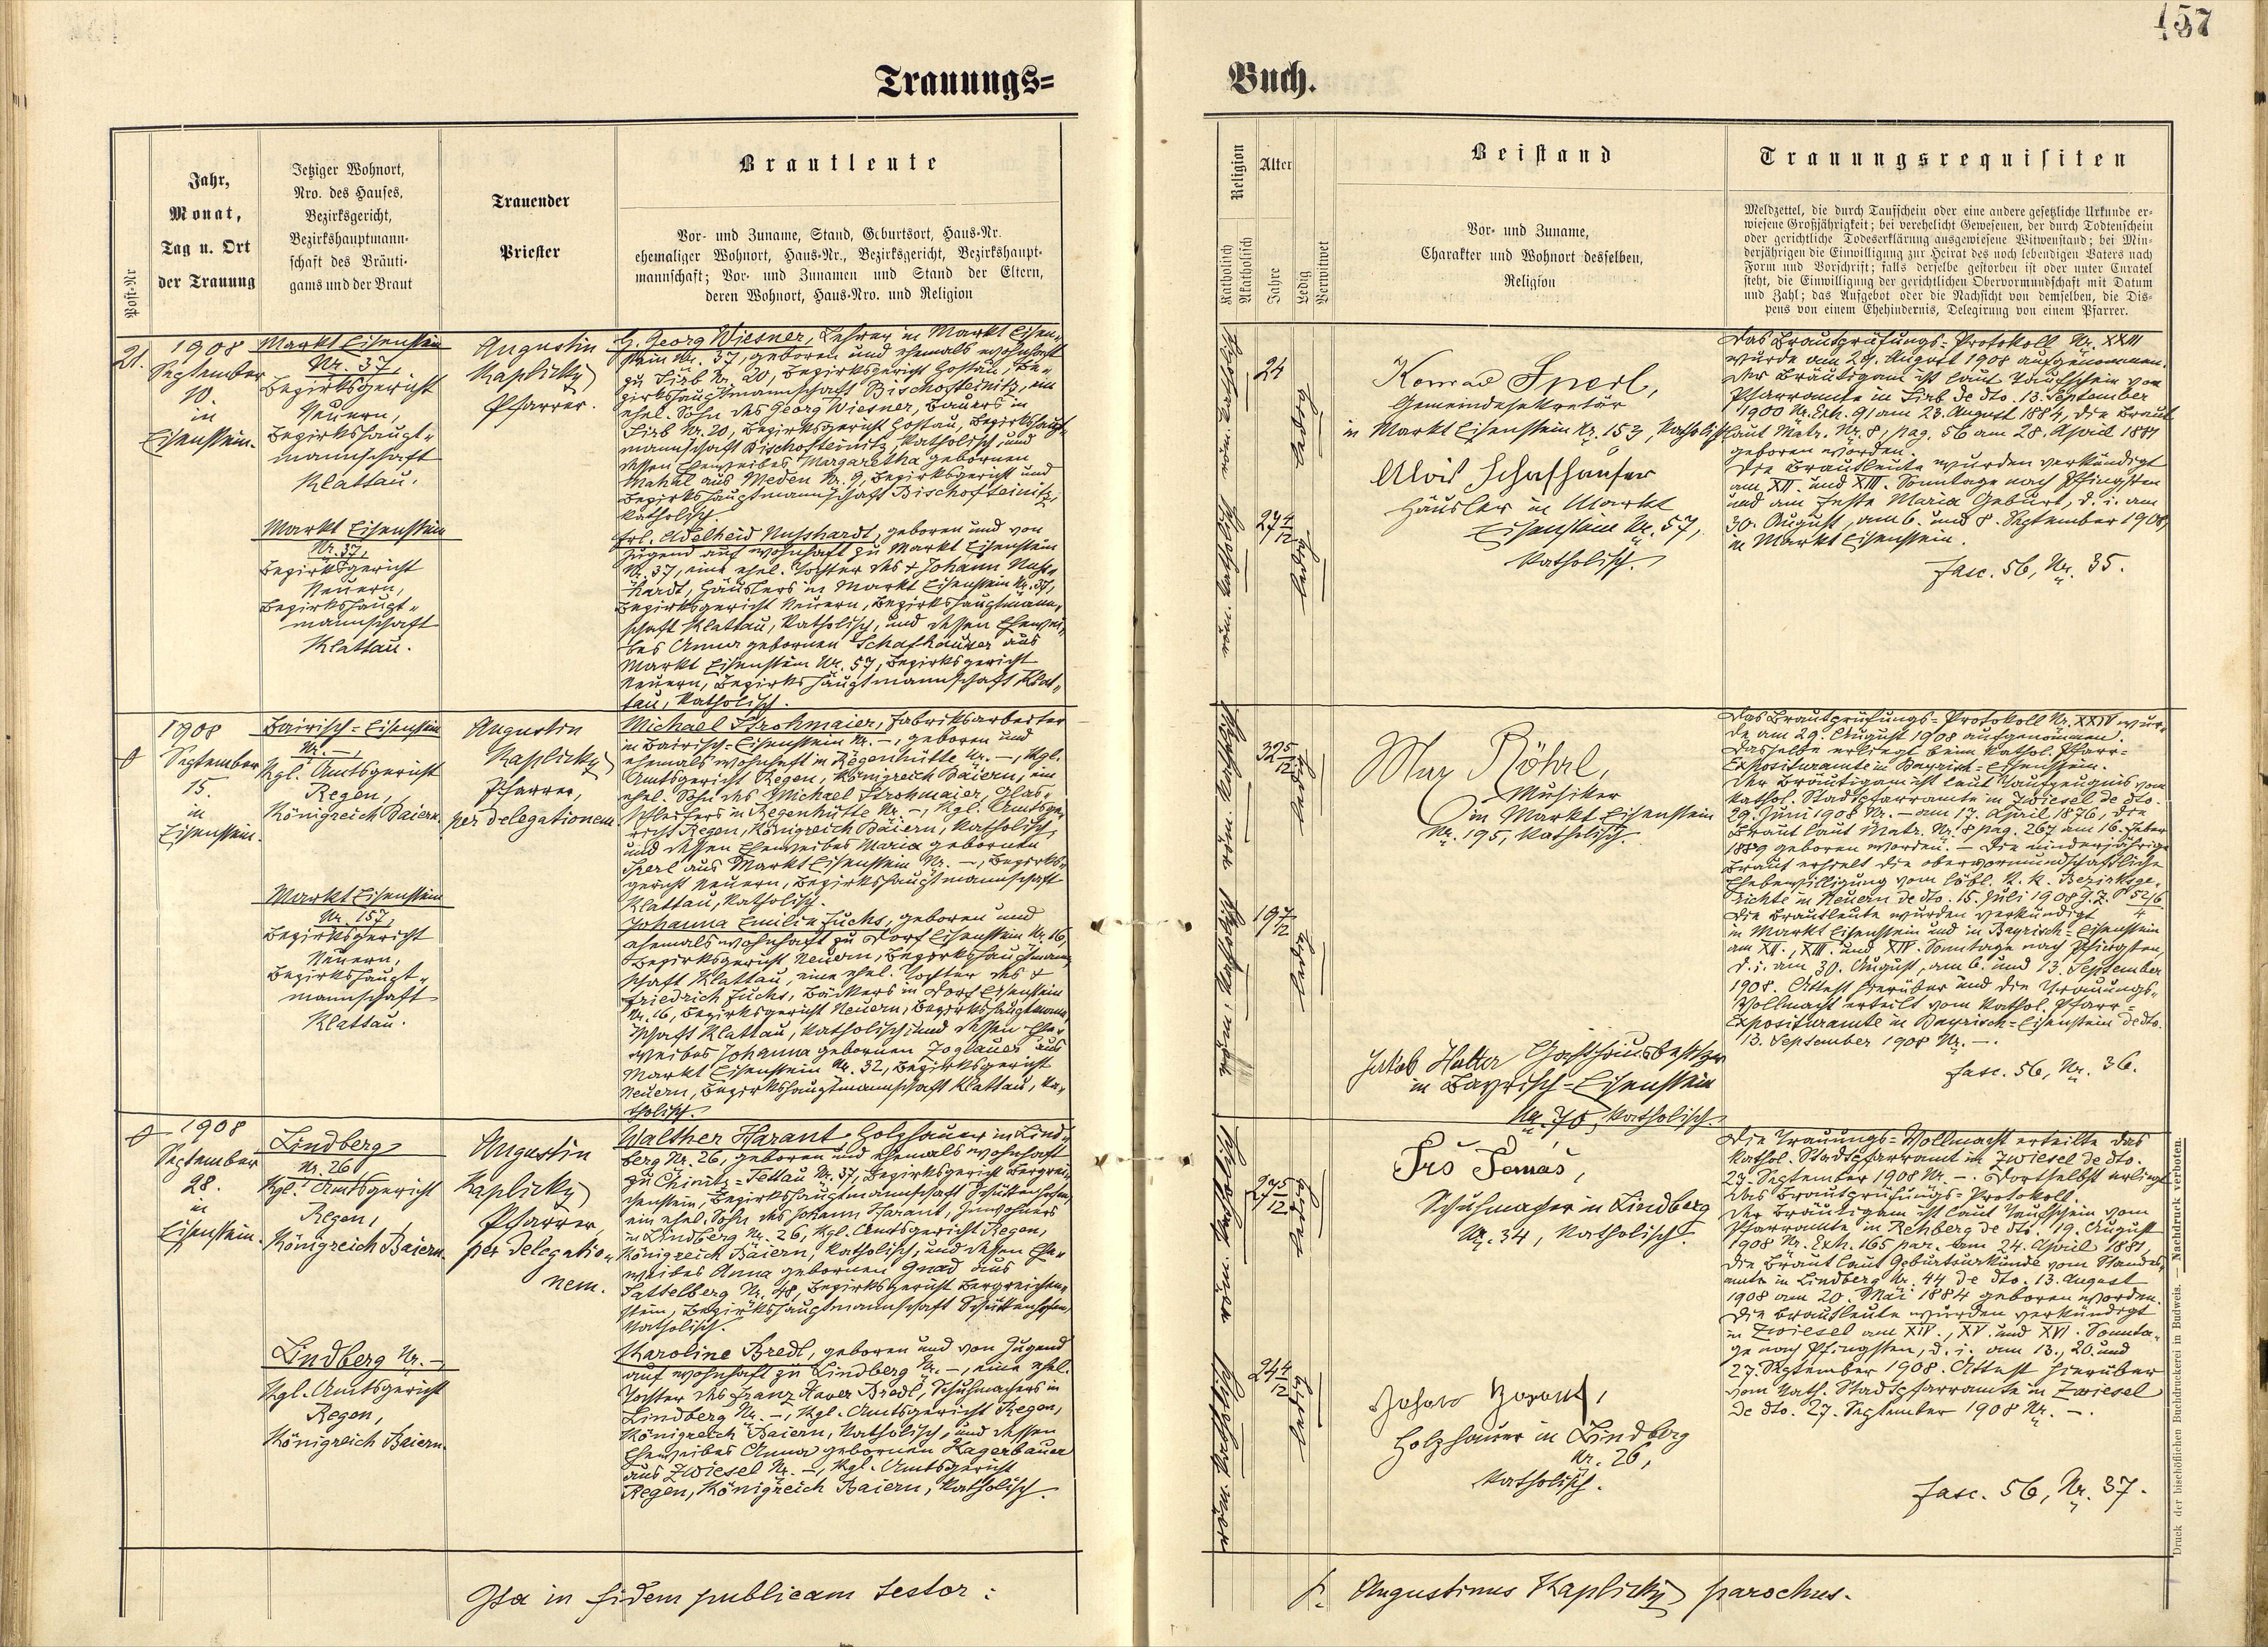 157
Trauungs=
Buch.
Post-Nr
Jahr,
Monat,
Tag u. Ort
der Trauung
Jetziger Wohnort,
Nro. des Hauses,
Bezirksgericht,
Bezirkshauptmann-
schaft des Bräuti-
gams und der Braut
Trauender
Priester
Brautleute
Vor- und Zuname, Stand, Geburtsort, Haus-Nr.
ehemaliger Wohnort, Haus-Nr., Bezirksgericht, Bezirkshaupt-
mannschaft; Vor- und Zunamen und Stand der Eltern,
deren Wohnort, Haus-Nro. und Religion
Religion
Katholisch
Akatholisch
Alter
Jahre
Ledig
Verwitwet
Beistand
Vor- und Zuname,
Charakter und Wohnort desselben,
Religion
Trauungsrequisiten
Meldzettel, die durch Taufschein oder eine andere gesetzliche Urkunde er-
wiesene Großjährigkeit; bei verehelicht Gewesenen, der durch Todtenschein
oder gerichtliche Todeserklärung ausgewiesene Witwenstand; bei Min-
derjährigen die Einwilligung zur Heirat des noch lebendigen Vaters nach
Form und Vorschrift; falls derselbe gestorben ist oder unter Curatel
steht, die Einwilligung der gerichtlichen Obervormundschaft mit Datum
und Zahl; das Aufgebot oder die Nachsicht von demselben, die Dis-
pens von einem Ehehindernis, Delegirung von einem Pfarrer.
21.
1908
September
10.
in
Eisenstein.
Markt Eisenstein
Nr. 37,
Bezirksgericht
Neuern,
Bezirkshaupt„
mannschaft
Klattau.
Markt Eisenstein
Nr. 37,
Bezirksgericht
Neuern,
Bezirkshaupt„
mannschaft
Klattau.
Augustin
Kaplický
Pfarrer.
H. Georg Wiesner, Lehrer in Markt Eisen„
stein Nr. 37, geboren und ehemals wohnhaft
zu Sirb Nr. 20, Bezirksgericht Hostau, Be„
zirkshauptmannschaft Bischofteinitz, ein
ehel. Sohn des Georg Wiesner, Bauers in
Sirb Nr. 20, Bezirksgericht Hostau, Bezirkshaupt„
mannschaft Bischofteinitz, katholisch, und
dessen Eheweibes Margaretha gebornen
Mahal aus Meden Nr. 9, Bezirksgericht und
Bezirkshauptmannschaft Bischofteinitz,
katholisch
Frl. Adelheid Nusshardt, geboren und von
Jugend auf wohnhaft zu Markt Eisenstein
Nr. 37, eine ehel. Tochter des † Johann Nuss„
hardt, Häuslers in Markt Eisenstein Nr. 37,
Bezirksgericht Neuern, Bezirkshauptmann„
schaft Klattau, katholisch, und dessen Ehewei„
bes Anna gebornen Schafhauser aus
Markt Eisenstein Nr. 57, Bezirksgericht
Neuern, Bezirkshauptmannschaft Klat„
tau, katholisch.
24
ledig
27 4/12
ledig
Konrad Sperl,
Gemeindesekretär
in Markt Eisenstein Nr. 153, katholisch
Alois Schafhauser
Häusler in Markt
Eisenstein Nr. 57,
katholisch.
Das Brautprüfungs=Protokoll Nr. XXIII
wurde am 29. August 1908 aufgenommen.
Der Bräutigam ist laut Taufschein vom
Pfarramte in Sirb de dto. 13. September
1900 Nr. Exh. 91 am 23. August 1884, die Braut
laut Matr. Nr. 8, pag. 56 am 28. April 1881
geboren worden.
Die Brautleute wurden verkündigt
am XII. und XIII. Sonntage nach Pfingsten
und am Feste Mariä Geburt, d. i. am
30. August, am 6. und 8. September 1908,
in Markt Eisenstein.
fasc. 56, Nr. 35.
1908
September
15.
in
Eisenstein.
Bairisch=Eisenstein
Nr. –,
Kgl. Amtsgericht
Regen,
Königreich Baiern.
Markt Eisenstein
Nr. 157,
Bezirksgericht
Neuern,
Bezirkshaupt„
mannschaft
Klattau.
Augustin
Kaplický
Pfarrer,
per delegationem.
Michael Strohmaier, Fabriksarbeiter
in Bairisch=Eisenstein Nr. –, geboren und
ehemals wohnhaft in Regenhütte Nr. –, Kgl.
Amtsgericht Regen, Königreich Baiern, ein
ehel. Sohn des Michael Strohmaier, Glas„
schleifers in Regenhütte Nr. –, Kgl. Amtsge„
richt Regen, Königreich Baiern, katholisch,
und dessen Eheweibes Maria gebornen
aus Markt Eisenstein Nr. –, Bezirks„
gericht Neuern, Bezirkshauptmannschaft
Klattau, katholisch.
Johanna Emilie Fuchs, geboren und
ehemals wohnhaft zu Dorf Eisenstein Nr. 16,
Bezirksgericht Neuern, Bezirkshauptmann„
schaft Klattau, eine ehel. Tochter des †
Friedrich Fuchs, Bäckers in Dorf Eisenstein
Nr. 16, Bezirksgericht Neuern, Bezirkshauptmann„
schaft Klattau, katholisch, und dessen Ehe„
weibes Johanna gebornen Joglauer aus
Markt Eisenstein Nr. 32, Bezirksgericht
Neuern, Bezirkshauptmannschaft Klattau, ka„
tholisch.
32 5/12
ledig
19 7/12
ledig
Max Röhrl,
Musiker
in Markt Eisenstein
Nr. 195, katholisch.
Jakob Halter Gasthausbesitzer
in Bayrisch=Eisenstein
Nr. 70, katholisch.
Das Brautprüfungs=Protokoll Nr. XXIV wur„
de am 29. August 1908 aufgenommen.
Dasselbe erliegt beim kathol. Pfarr=
Expositurамte in Bayrisch=Eisenstein.
Der Bräutigam ist laut Taufzeugnis vom
kathol. Stadtpfarramte in Zwiesel de dto.
29. Juni 1908 Nr. – am 17. April 1876, die
Braut laut Matr. Nr. 8 pag. 267 am 16. Feber
1889 geboren worden. – Die minderjährige
Braut erhielt die obervormundschaftliche
Ehebewilligung vom löbl. k. k. Bezirksge„
richte in Neuern de dto. 15. Juli 1908
Die Brautleute wurden verkündigt
in Markt Eisenstein und in Bayrisch=Eisenstein
am XII., XIII. und XIV. Sonntage nach Pfingsten,
d. i. am 30. August, am 6. und 13. September
1908. Attest hierüber und die Trauungs„
Vollmacht erteilt vom kathol. Pfarr=
Expositurамte in Bayrisch=Eisenstein de dto.
13. September 1908 Nr. –.
fasc. 56, Nr. 36.
1908
September
28.
in
Eisenstein.
Lindberg
Nr. 26,
Kgl. Amtsgericht
Regen,
Königreich Baiern.
Lindberg Nr. –,
Kgl. Amtsgericht
Regen,
Königreich Baiern.
Augustin
Kaplický
Pfarrer,
per delegatio„
nem.
Walther Harant, Holzhauer in Lind„
berg Nr. 26, geboren und ehemals wohnhaft
zu Chinitz=Tettau Nr. 37, Bezirksgericht Bergrei„
chenstein, Bezirkshauptmannschaft Schüttenhofen,
ein ehel. Sohn des Johann Harant, Inwohners
in Lindberg Nr. 26, Kgl. Amtsgericht Regen,
Königreich Baiern, katholisch, und dessen Ehe„
weibes Anna gebornen Gnad aus
Sattelberg Nr. 48, Bezirksgericht Bergreichen„
stein, Bezirkshauptmannschaft Schüttenhofen,
katholisch.
Karoline Bredl, geboren und von Jugend
auf wohnhaft zu Lindberg Nr. –, eine ehel.
Tochter des Franz Xaver Bredl, Schuhmachers in
Lindberg Nr. –, Kgl. Amtsgericht Regen,
Königreich Baiern, katholisch, und dessen
Eheweibes Anna gebornen Hagerbauer
aus Zwiesel Nr. –, Kgl. Amtsgericht
Regen, Königreich Baiern, katholisch.
27 5/12
ledig
24 4/12
ledig
Schuhmacher in Lindberg
Nr. 34, katholisch.
Johann Harant,
Holzhauer in Lindberg
Nr. 26,
katholisch.
Die Trauungs=Vollmacht erteilte das
kathol. Stadtpfarramt in Zwiesel de dto.
27. September 1908 Nr. –. Dortselbst erliegt
das Brautprüfungs=Protokoll.
Der Bräutigam ist laut Taufschein vom
Pfarramte in Rehberg de dto. 19. August
1908 Nr. Exh. 165 par. am 24. April 1881,
die Braut laut Geburtsurkunde vom Standes„
amte in Lindberg Nr. 44 de dto. 13. August
1908 am 20. Mai 1884 geboren worden.
Die Brautleute wurden verkündigt
in Zwiesel am XIV., XV. und XVI. Sonnta„
ge nach Pfingsten, d. i. am 13., 20. und
27. September 1908. Attest hierüber
vom kath. Stadtpfarramte in Zwiesel
de dto. 27. September 1908 Nr. –.
fasc. 56, Nr. 37.
Ita in fidem publicam testor:
P. Augustinus Kaplický parochus.
Druck der bischöflichen Buchdruckerei in Budweis. — Nachdruck verboten.